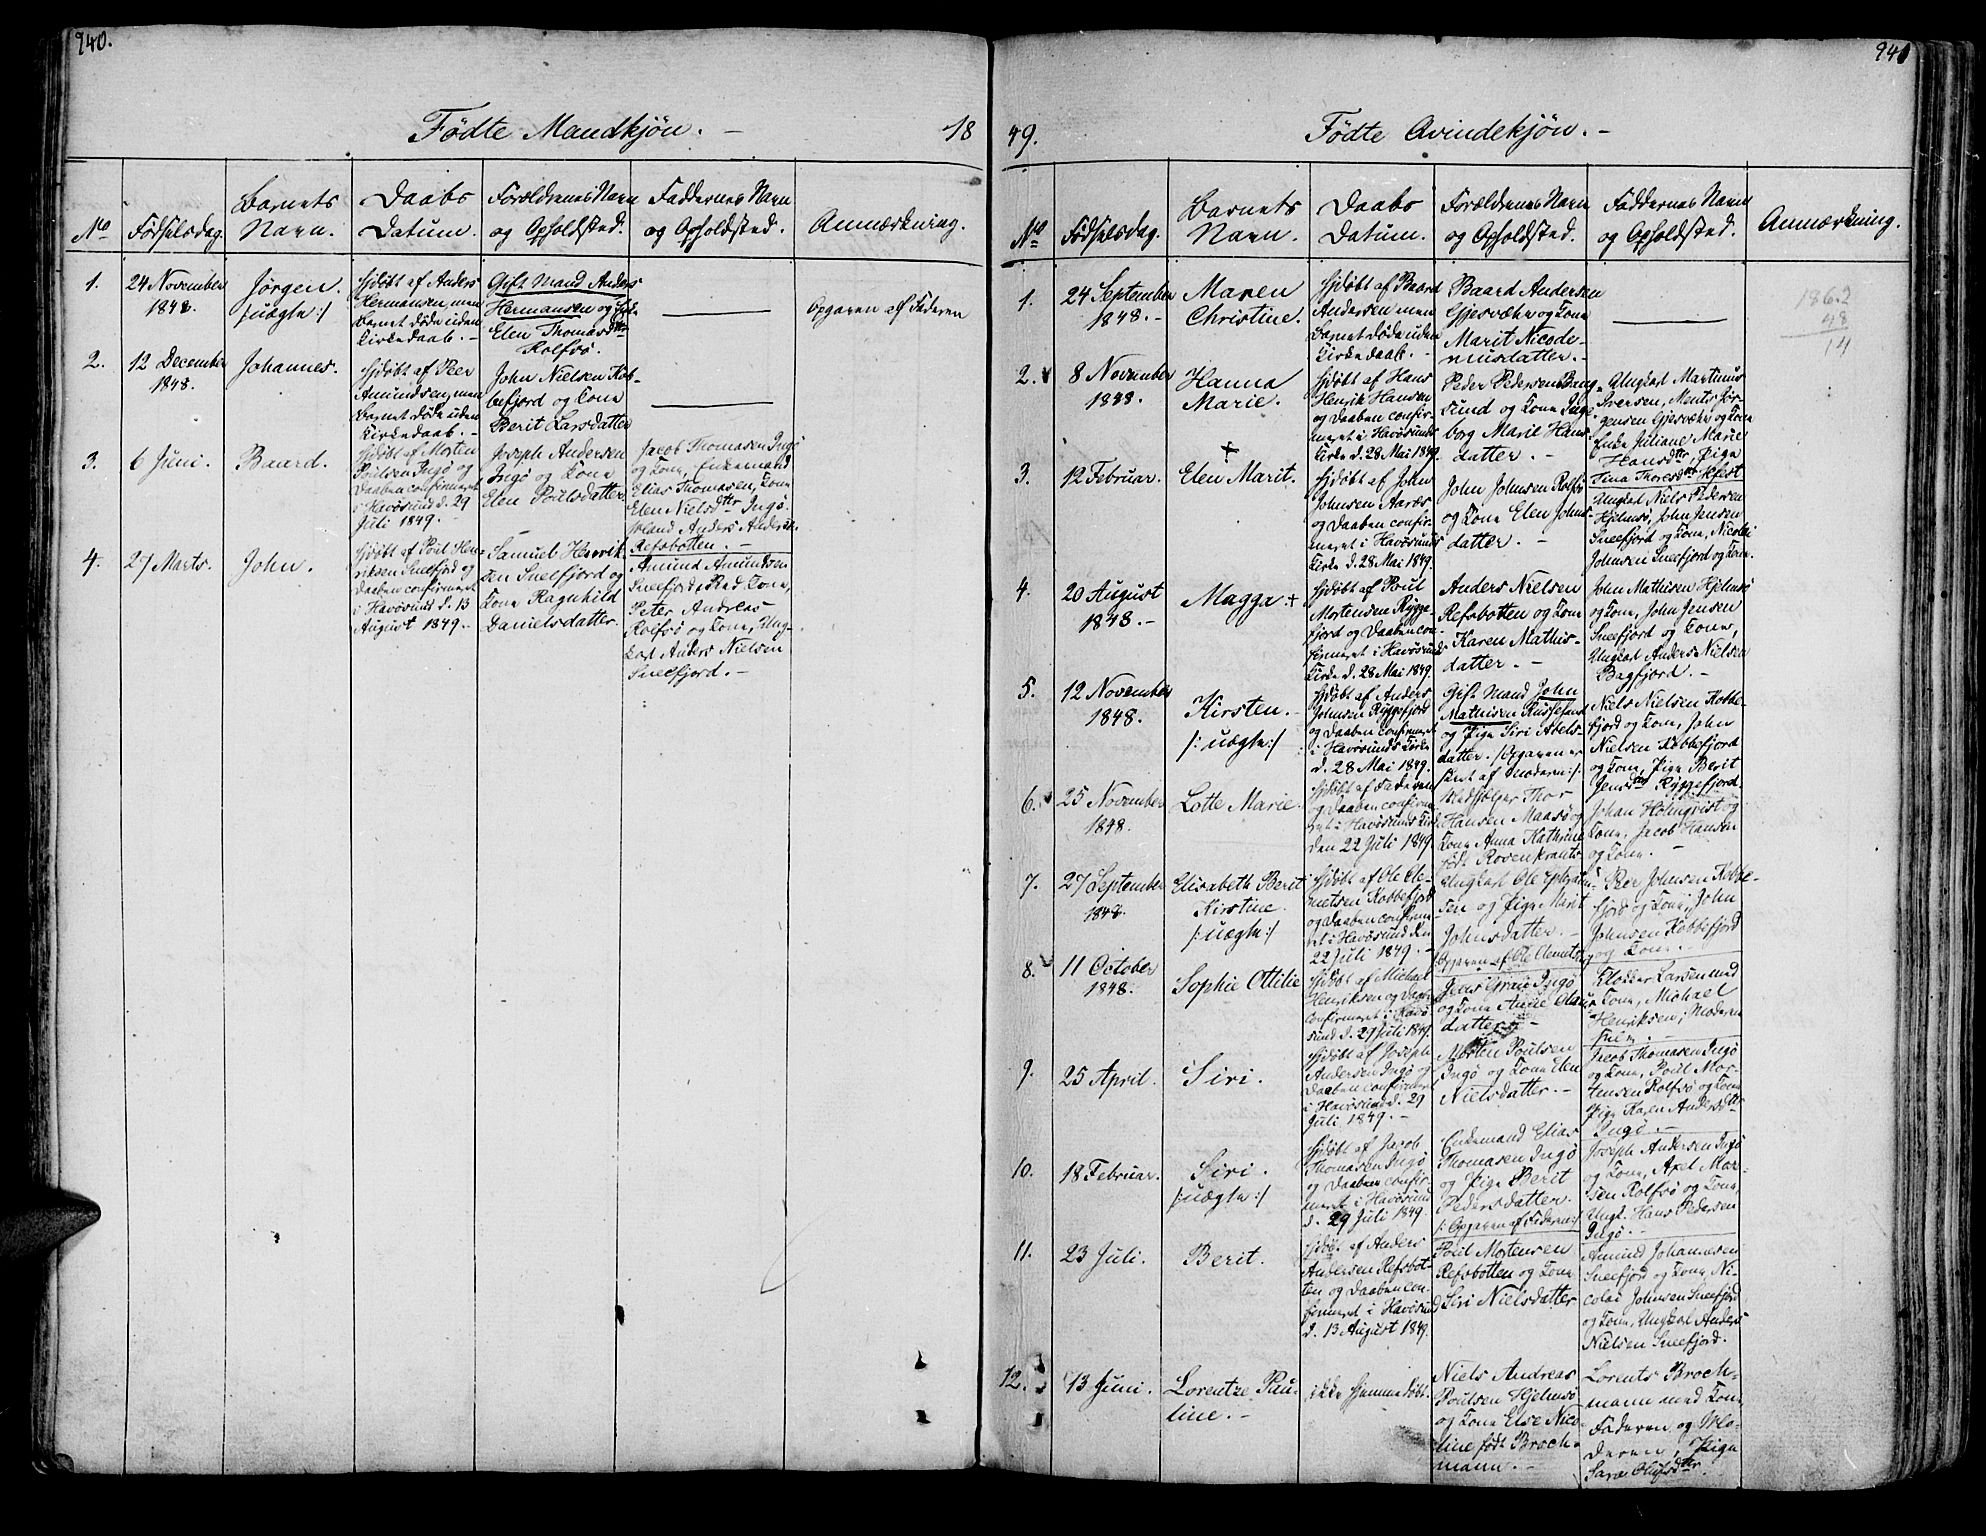 940.
Fødte Mandkjøn. — 18
No
Fødselsdag.
Barnets
Navn.
Daabs
Datum.
Forældrenes Navn
og Opholdsted.
Faddernes Navn
og Opholdsted.
Anmærkning.
1.
24 November
1848.
Jørgen.
/:uægte:/
Hjdøbt af Anders
Hermansen, men
Barnet døde uden
Kirkedaab. —
Gift Mand Anders
Hermansen og
Elen Thomasdtr
Rolfsø.
Opgaven af Faderen
2.
12 December
1848.
Johannes.
Hjdøbt af Peer
Amundsen, men
Barnet døde uden
Kirkedaab. —
John Nielsen Kob-
befjord og Kone
Berit Larsdatter
3.
6 Juni.
Baard.
Hjdøbt af Morten
Poulsen Ingø og
Daaben confirmeret
i Havøsund d. 29
Juli 1849. —
Joseph Andersen
Ingø og Kone
Elen Poulsdatter
Jacob Thomasen Ingø
og Kone, Enkemand
Elias Thomasen, Kone
Elen Nielsdtr Ingø.
Mand Anders Anders.
Refsbotten. —
4.
27 Marts.
John.
Hjdøbt af Poul Hen-
riksen Sneefjord og
Daaben confirmeret
i Havøsund d. 13
August 1849. —
Samuel Henrik-
sen Sneefjord og
Kone Ragnhild
Danielsdatter.
Amund Amundsen
Sneefjord, Kone,
Peter Andreas
Rolfsø og Kone, Ung-
karl Anders Nielsen
Sneefjord. —
941
49.
Fødte Qvindekjøn. —
No
Fødselsdag.
Barnets
Navn.
Daabs
Datum.
Forældrenes Navn
og Opholdsted.
Faddernes Navn
og Opholdsted.
Anmærkning.
1.
24 September
1848. —
Maren
Christine.
Hjdøbt af Baard
Andersen men
Barnet døde uden
Kirkedaab. —
Baard Andersen
Gjesvær og Kone
Marit Nicode-
musdatter. —
1862
48
14
2.
8 November
1848.
Hanna
Marie.
Hjdøbt af Hans
Henrik Hansen
og Daaben confir-
meret i Havøsunds
Kirke d. 28 Mai 1849.
Peder Pedersen Bang-
sund og Kone Inge-
borg Marit Hans-
datter. —
Ungkarl Martinus
Iversen, Mentz Jør-
gensen Gjesvær og Kone
Enke Juliane Marie
Hansdtr, Pige
Tina Thoresdtr
3.
12 Februar.
+
Elen Marit.
Hjdøbt af John
Johnsen Aarøs
og Daaben confir-
meret i Havøsunds
Kirke d. 28 Mai 1849.
John Johnsen Rolfsø
og Kone Elen Johns-
datter. —
Ungkarl Niels Pedersen
Hjelmsø, John Jensen
Sneefjord og Kone, Nicolai
Johnsen Sneefjord og Kone.
4.
20 August
1848. —
Magga. +
Hjdøbt af Poul
Mortensen Rygge-
fjord og Daaben con-
firmeret i Havøsunds
Kirke d. 28 Mai 1849.
Anders Nielsen
Refsbotten og Kone
Karen Mathis-
datter. —
John Mathisen Hjelmsø
og Kone, John Jensen
Sneefjord og Kone,
Ungkarl Anders Nielsen
Bagfjord. —
5.
12 November
1848.
Kirsten. —
/:uægte:/
Hjdøbt af Anders
Johnsen Ryggefjord
og Daaben confirmeret
i Havøsunds Kirke
d. 28 Mai 1849.
Gift Mand John
Mathisen
og Pige Siri Abels-
datter. /:Opgaven er
skeet af Moderen:/
Niels Nielsen Kobbe-
fjord og Kone, John
Nielsen Kobbefjord
og Kone, Pige Berit
Jensdtr Ryggefjord.
6.
25 November
1848.
Lotte Marie.
Hjdøbt af Faderen
og Daaben confirme-
ret i Havøsunds Kirke
den 22 Juli 1849.
Thor
Hansen Maasø og
Kone Anna Kathrine
født Rosenkrants
Johan Holmqvist og
Kone, Jacob Hansen
og Kone. —
7.
27 September
1848.
Elisabeth Berit
Kirstine.
/:uægte:/
Hjdøbt af Ole Cle-
metsen Kobbefjord
og Daaben confirme-
ret i Havøsund den
22 Juli 1849. —
Ungkarl Ole
sen og Pige Marit
Johnsdatter. —
Opgaven af Ole Clemets.
Peer Johnsen Kobbe-
fjord og Kone, John
Johnsen Kobbefjord
og Kone. —
8.
11 October
1848.
Sophie Ottilie
Hjdøbt af Michael
Henriksen og Daaben
confirmeret i Havø-
sund d. 29 Juli 1849.
Jens Ingø
og Kone Anne
datter. —
Klokker Larsen med
Kone, Michael
Henriksen, Moderen
9.
25 April.
Siri.
Hjdøbt af Joseph
Andersen Ingø og
Daaben confirmeret
i Havøsund d. 29
Juli 1849. —
Morten Poulsen
Ingø og Kone Elen
Nielsdatter. —
Jacob Thomasen Ingø
og Kone, Poul Mor-
tensen Rolfsø og Kone
Pige Karen Andersdtr
Ingø. —
10.
18 Februar.
Siri.
/:uægte:/
Hjdøbt af Jacob
Thomasen Ingø
og Daaben confir-
meret i Havøsund
d. 29 Juli 1849.
Enkemand Elias
Thomasen Ingø
og Pige Berit
Pedersdatter.
/:Opgaven af Faderen:/
Joseph Andersen Ingø
og Kone, Axel Mar-
sen Rolfsø og Kone,
Ungk. Hans Pedersen
Ingø. —
11.
23 Juli.
Berit.
Hjdøbt af Anders
Andersen Refsbot-
ten og Daaben con-
firmeret i Havøsund
d. 13 August 1849.
Poul Mortensen
Refsbotten og Kone
Siri Nielsdatter
Amund Johannesen
Sneefjord og Kone, Ni-
colai Johnsen Sneefjord
og Kone, Ungkarl Anders
Nielsen Sneefjord.
12.
13 Juni.
Lorentze Pau-
line. —
ikke hjemmedøbt.
Niels Andreas
Poulsen Hjelmsø
og Kone Else Nico-
line født Broch-
mann. —
Lorents Broch-
mann med Kone
Faderen og Mo-
deren, Pige
Sara Olufsdtr